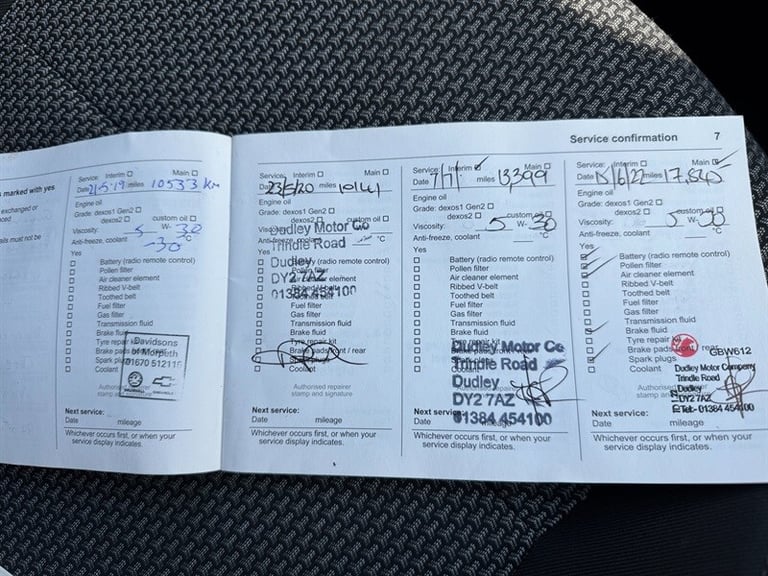 Service confirmation 7
s marked with yes
exchanged or
ced
als must not be
Service: Interim ☐ Main ☐
Date 21-5-19 miles 10533 km
Engine oil
Grade: dexos1 Gen2 ☐
dexos2 ☐ custom oil ☐
Viscosity: 5 W- 30
Anti-freeze, coolant -30 °C
Yes
☐ Battery (radio remote control)
☐ Pollen filter
☐ Air cleaner element
☐ Ribbed V-belt
☐ Toothed belt
☐ Fuel filter
☐ Gas filter
☐ Transmission fluid
☐ Brake fluid
☐ Tyre repair kit
☐ Brake pads front / rear
☐ Spark plugs
☐ Coolant
Davidsons
of Morpeth
01670 51211
Authorised repairer
stamp and signature
Next service:
Date mileage
Whichever occurs first, or when your
service display indicates.
Service: Interim ☐ Main ☐
Date 23/5/20 miles 10141
Engine oil
Grade: dexos1 Gen2 ☐
dexos2 ☐ custom oil ☐
Viscosity: W-
Anti-freeze, coolant °C
Yes
Dudley Motor Co
Trindle Road
Dudley
DY2 7AZ
01384 454100
☐ Battery (radio remote control)
☐ Pollen filter
☐ Air cleaner element
☐ Ribbed V-belt
☐ Toothed belt
☐ Fuel filter
☐ Gas filter
☐ Transmission fluid
☐ Brake fluid
☐ Tyre repair kit
☐ Brake pads front / rear
☐ Spark plugs
☐ Coolant
Authorised repairer
stamp and signature
Next service:
Date mileage
Whichever occurs first, or when your
service display indicates.
Service: Interim ☑ Main ☐
Date miles 13,399
Engine oil
Grade: dexos1 Gen2 ☐
dexos2 ☐ custom oil ☐
Viscosity: 5 W- 30
Anti-freeze, coolant °C
Yes
☐ Battery (radio remote control)
☐ Pollen filter
☐ Air cleaner element
☐ Ribbed V-belt
☐ Toothed belt
☐ Fuel filter
☐ Gas filter
☐ Transmission fluid
☐ Brake fluid
☐ Tyre repair kit
☐ Brake pads front / rear
☐ Spark plugs
☐ Coolant
Dudley Motor Co
Trindle Road
Dudley
DY2 7AZ
01384 454100
Next service:
Date mileage
Whichever occurs first, or when your
service display indicates.
Service: Interim ☐ Main ☑
Date /6/22 miles 17,840
Engine oil
Grade: dexos1 Gen2 ☐
dexos2 ☐ custom oil ☐
Viscosity: 5 W- 30
Anti-freeze, coolant °C
Yes
☑ Battery (radio remote control)
☑ Pollen filter
☐ Air cleaner element
☐ Ribbed V-belt
☐ Toothed belt
☐ Fuel filter
☐ Gas filter
☐ Transmission fluid
☑ Brake fluid
☐ Tyre repair kit
☐ Brake pads front / rear
☑ Spark plugs
☐ Coolant
GBW612
Dudley Motor Company
Trindle Road
Dudley
DY2 7AZ
Tel:- 01384 454100
Next service:
Date mileage
Whichever occurs first, or when your
service display indicates.